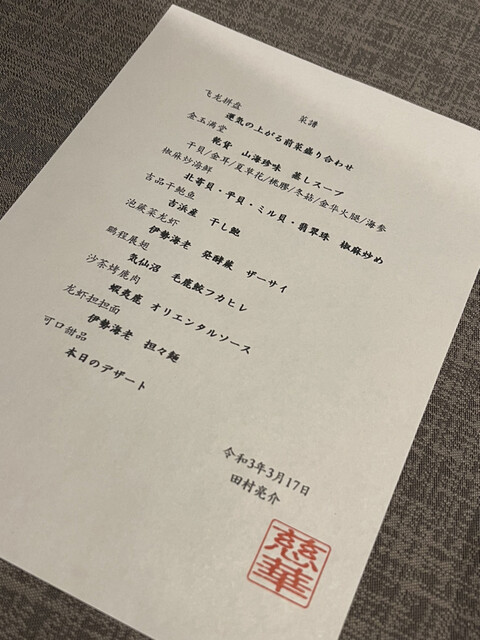 菜譜
飞龙拼盘
運気の上がる前菜盛り合わせ
金玉满堂
乾貨 山海珍味 蒸しスープ
干贝/金耳/夏草花/桃膠/冬菇/金华火腿/海参
椒麻炒海鲜
北寄貝・平貝・ミル貝・翡翠珠 椒麻炒め
吉品干鲍鱼
吉浜産 干し鮑
泡蕨菜龙虾
伊勢海老 発酵蕨 ザーサイ
鹏程展翅
気仙沼 毛鹿鮫フカヒレ
沙茶烤鹿肉
蝦夷鹿 オリエンタルソース
龙虾担担面
伊勢海老 担々麺
可口甜品
本日のデザート
令和3年3月17日
田村亮介
慈華